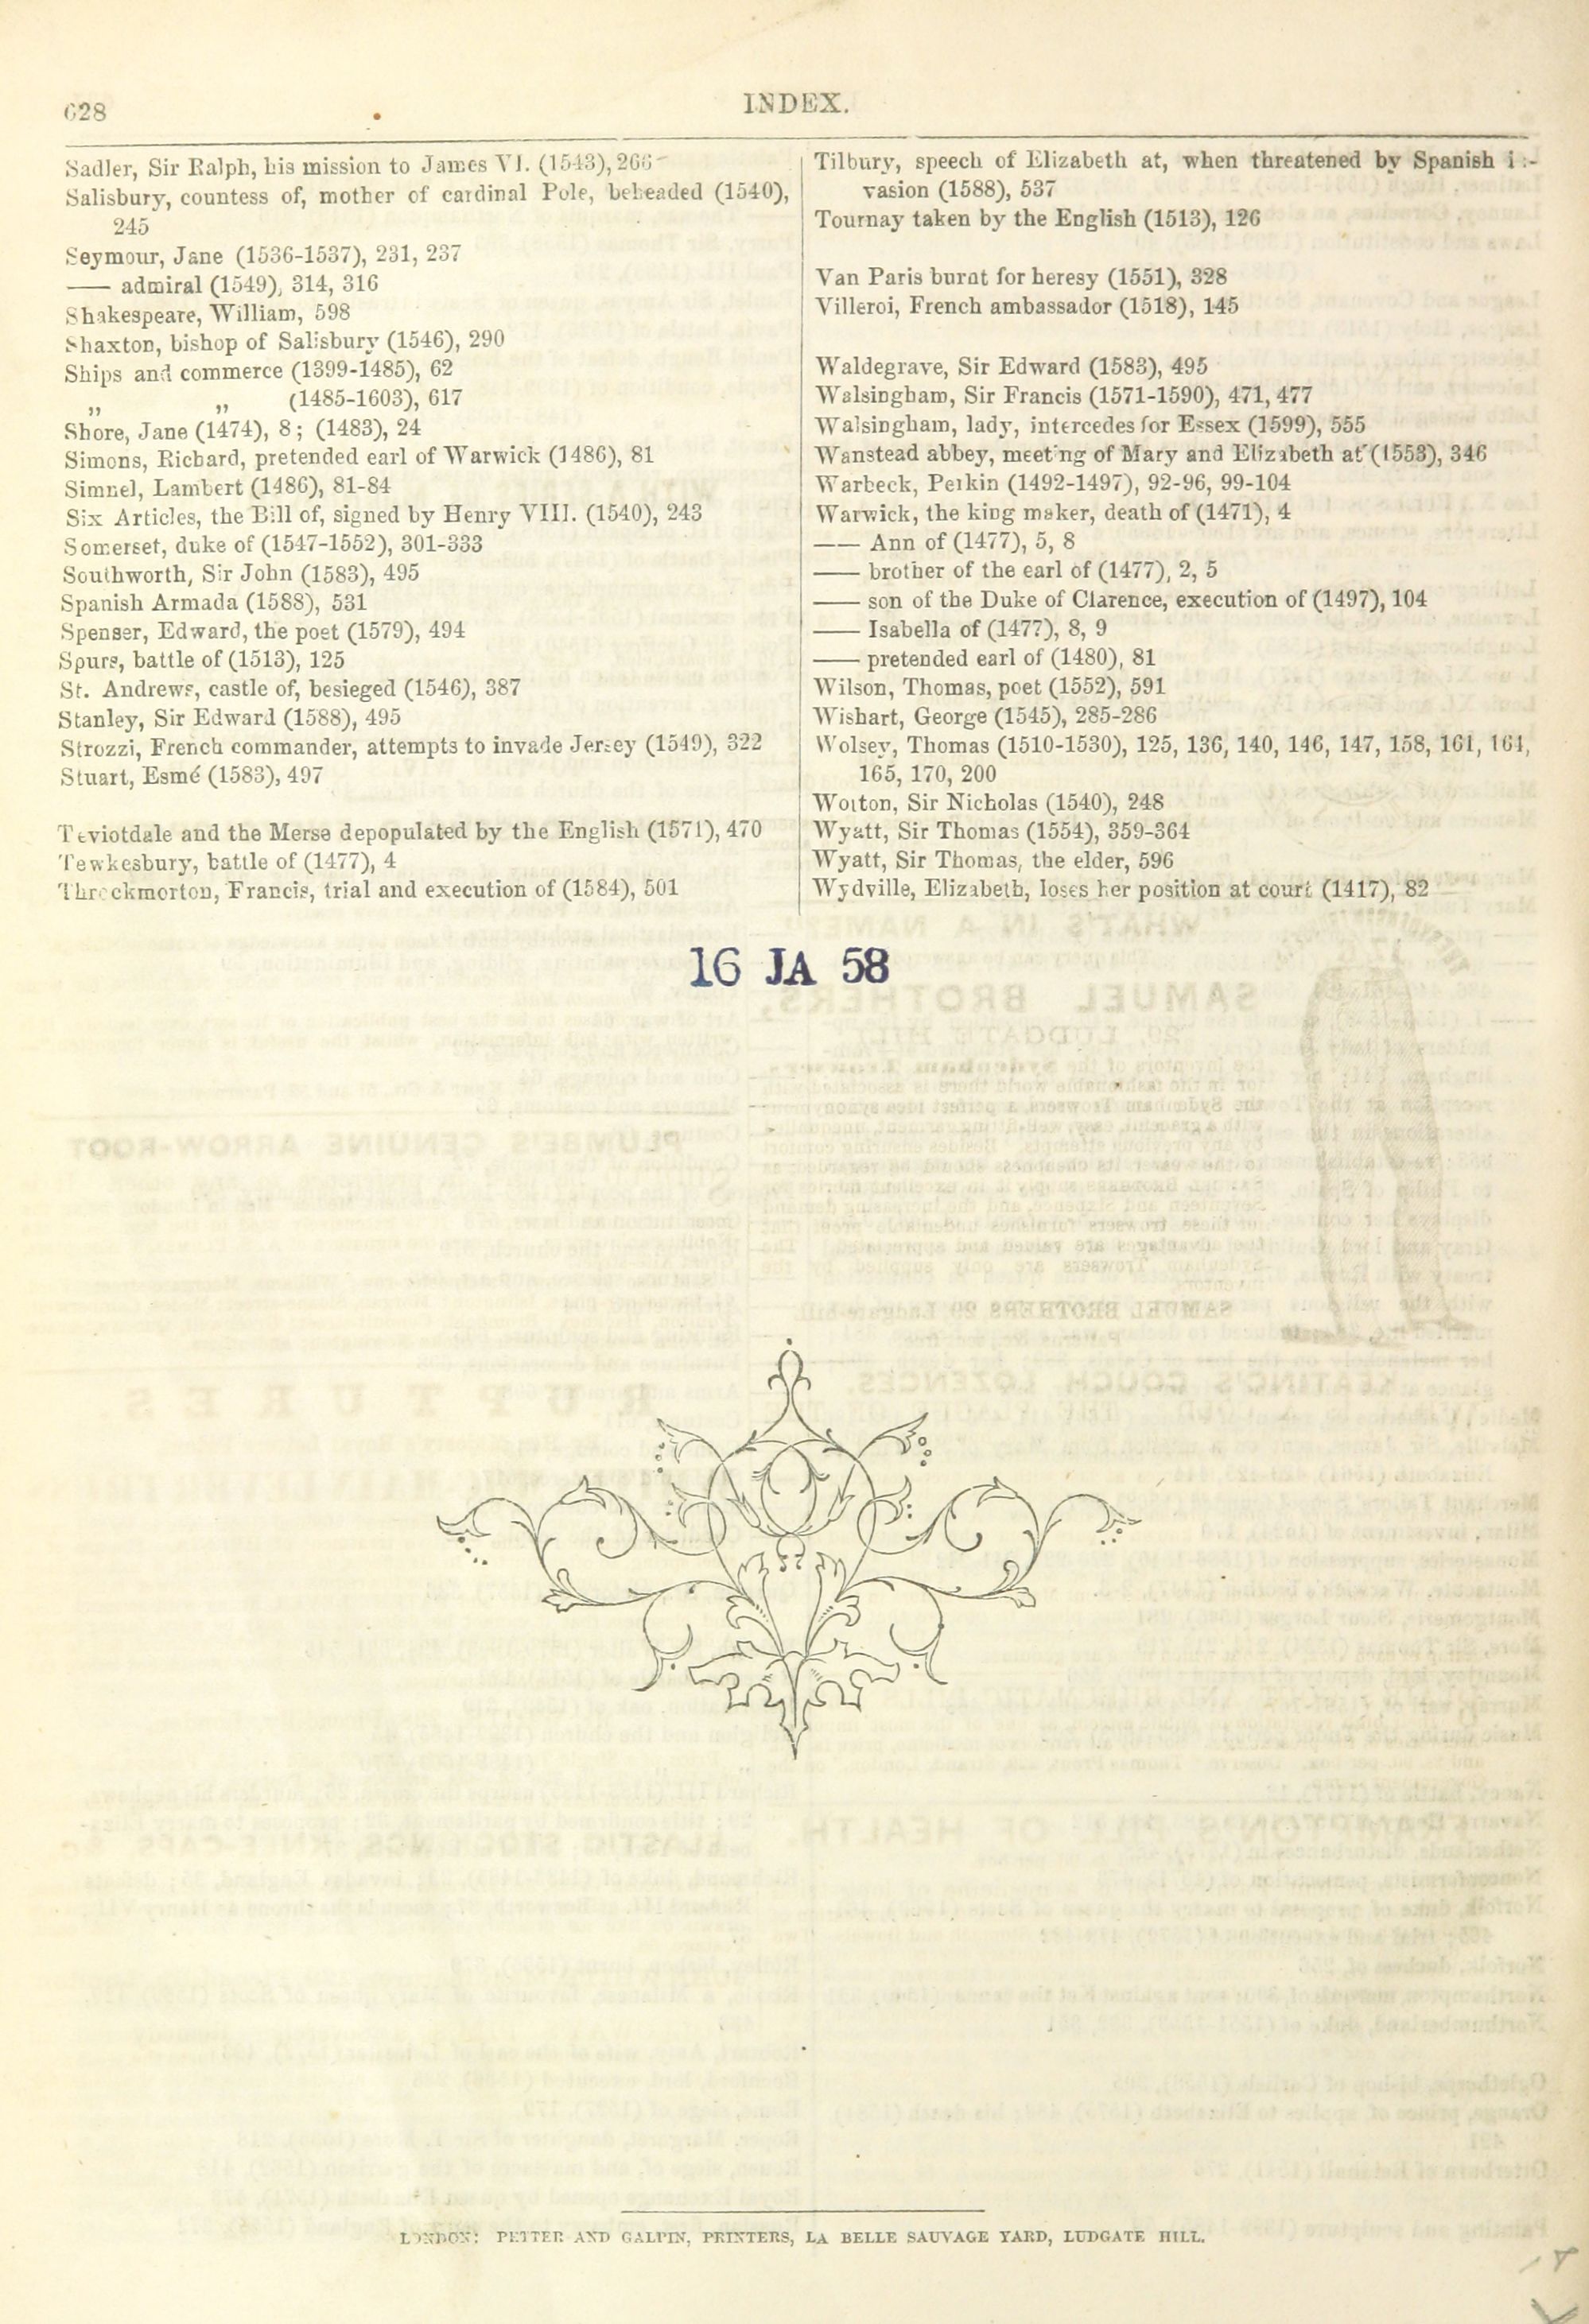 628
INDEX.
Sadler, Sir Ralph, his mission to James VI. (1543), 266
Salisbury, countess of, mother of cardinal Pole, beheaded (1540),
245
Seymour, Jane (1536-1537), 231, 237
—— admiral (1549), 314, 316
Shakespeare, William, 598
Shaxton, bishop of Salisbury (1546), 290
Ships and commerce (1399-1485), 62
„ „ (1485-1603), 617
Shore, Jane (1474), 8; (1483), 24
Simons, Richard, pretended earl of Warwick (1486), 81
Simnel, Lambert (1486), 81-84
Six Articles, the Bill of, signed by Henry VIII. (1540), 243
Somerset, duke of (1547-1552), 301-333
Southworth, Sir John (1583), 495
Spanish Armada (1588), 531
Spenser, Edward, the poet (1579), 494
Spurs, battle of (1513), 125
St. Andrews, castle of, besieged (1546), 387
Stanley, Sir Edward (1588), 495
Strozzi, French commander, attempts to invade Jersey (1549), 322
Stuart, Esmé (1583), 497
Teviotdale and the Merse depopulated by the English (1571), 470
Tewkesbury, battle of (1477), 4
Throckmorton, Francis, trial and execution of (1584), 501
Tilbury, speech of Elizabeth at, when threatened by Spanish in-
vasion (1588), 537
Tournay taken by the English (1513), 126
Van Paris burnt for heresy (1551), 328
Villeroi, French ambassador (1518), 145
Waldegrave, Sir Edward (1583), 495
Walsingham, Sir Francis (1571-1590), 471, 477
Walsingham, lady, intercedes for Essex (1599), 555
Wanstead abbey, meeting of Mary and Elizabeth at (1553), 346
Warbeck, Perkin (1492-1497), 92-96, 99-104
Warwick, the king maker, death of (1471), 4
—— Ann of (1477), 5, 8
—— brother of the earl of (1477), 2, 5
—— son of the Duke of Clarence, execution of (1497), 104
—— Isabella of (1477), 8, 9
—— pretended earl of (1480), 81
Wilson, Thomas, poet (1552), 591
Wishart, George (1545), 285-286
Wolsey, Thomas (1510-1530), 125, 136, 140, 146, 147, 158, 161, 164,
165, 170, 200
Wotton, Sir Nicholas (1540), 248
Wyatt, Sir Thomas (1554), 359-364
Wyatt, Sir Thomas, the elder, 596
Wydville, Elizabeth, loses her position at court (1417), 82
16 JA 58
LONDON: PETTER AND GALPIN, PRINTERS, LA BELLE SAUVAGE YARD, LUDGATE HILL.